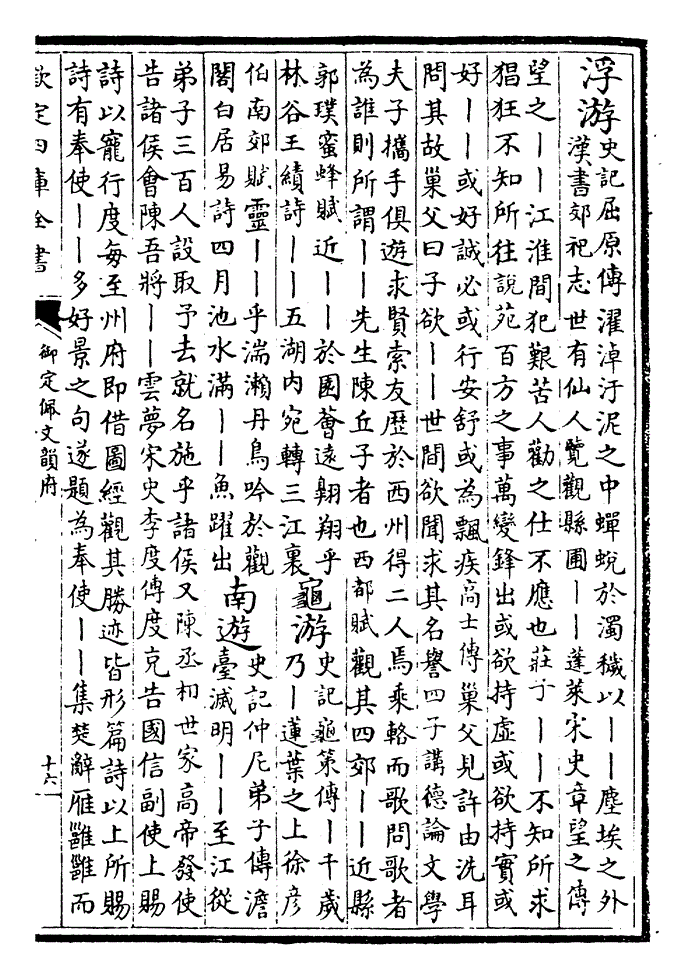 浮游
史記屈原傳濯淖汙泥之中蟬蛻於濁穢以||塵埃之外
漢書郊祀志世有仙人覽觀縣圃||蓬萊宋史章望之傳
望之||江淮間犯艱苦人勸之仕不應也莊子||不知所求
猖狂不知所往說苑百方之事萬變鋒出或欲持虛或欲持實或
好||或好誠必或行安舒或為飄疾高士傳巢父見許由洗耳
問其故巢父曰子欲||世間欲聞求其名譽四子講德論文學
夫子攜手俱遊求賢索友歷於西州得二人焉乘輅而歌問歌者
為誰則所謂||先生陳丘子者也西都賦觀其四郊||近縣
郭璞蜜蜂賦近||於園薈遠翱翔乎
林谷王績詩||五湖內宛轉三江裏
龜游
史記龜策傳|千歲
乃|蓮葉之上徐彥
伯南郊賦靈||乎湍瀨丹鳥吟於觀
閣白居易詩四月池水滿||魚躍出
南遊
史記仲尼弟子傳澹
臺滅明||至江從
弟子三百人設取予去就名施乎諸侯又陳丞相世家高帝發使
告諸侯會陳吾將||雲夢宋史李度傳度克告國信副使上賜
詩以寵行度每至州府即借圖經觀其勝迹皆形篇詩以上所賜
詩有奉使||多好景之句遂題為奉使||集楚辭雁雝雝而
欽定四庫全書
御定佩文韻府
十六